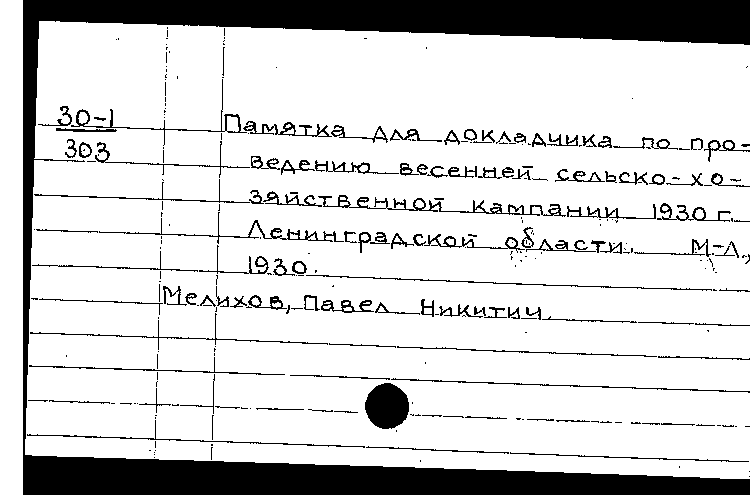 30-1
303
Памятка для докладчика по про-
ведению весенней сельско-хо-
зяйственной кампании 1930 г.
Ленинградской области. М-Л.,
1930.
Мелихов, Павел Никитич.